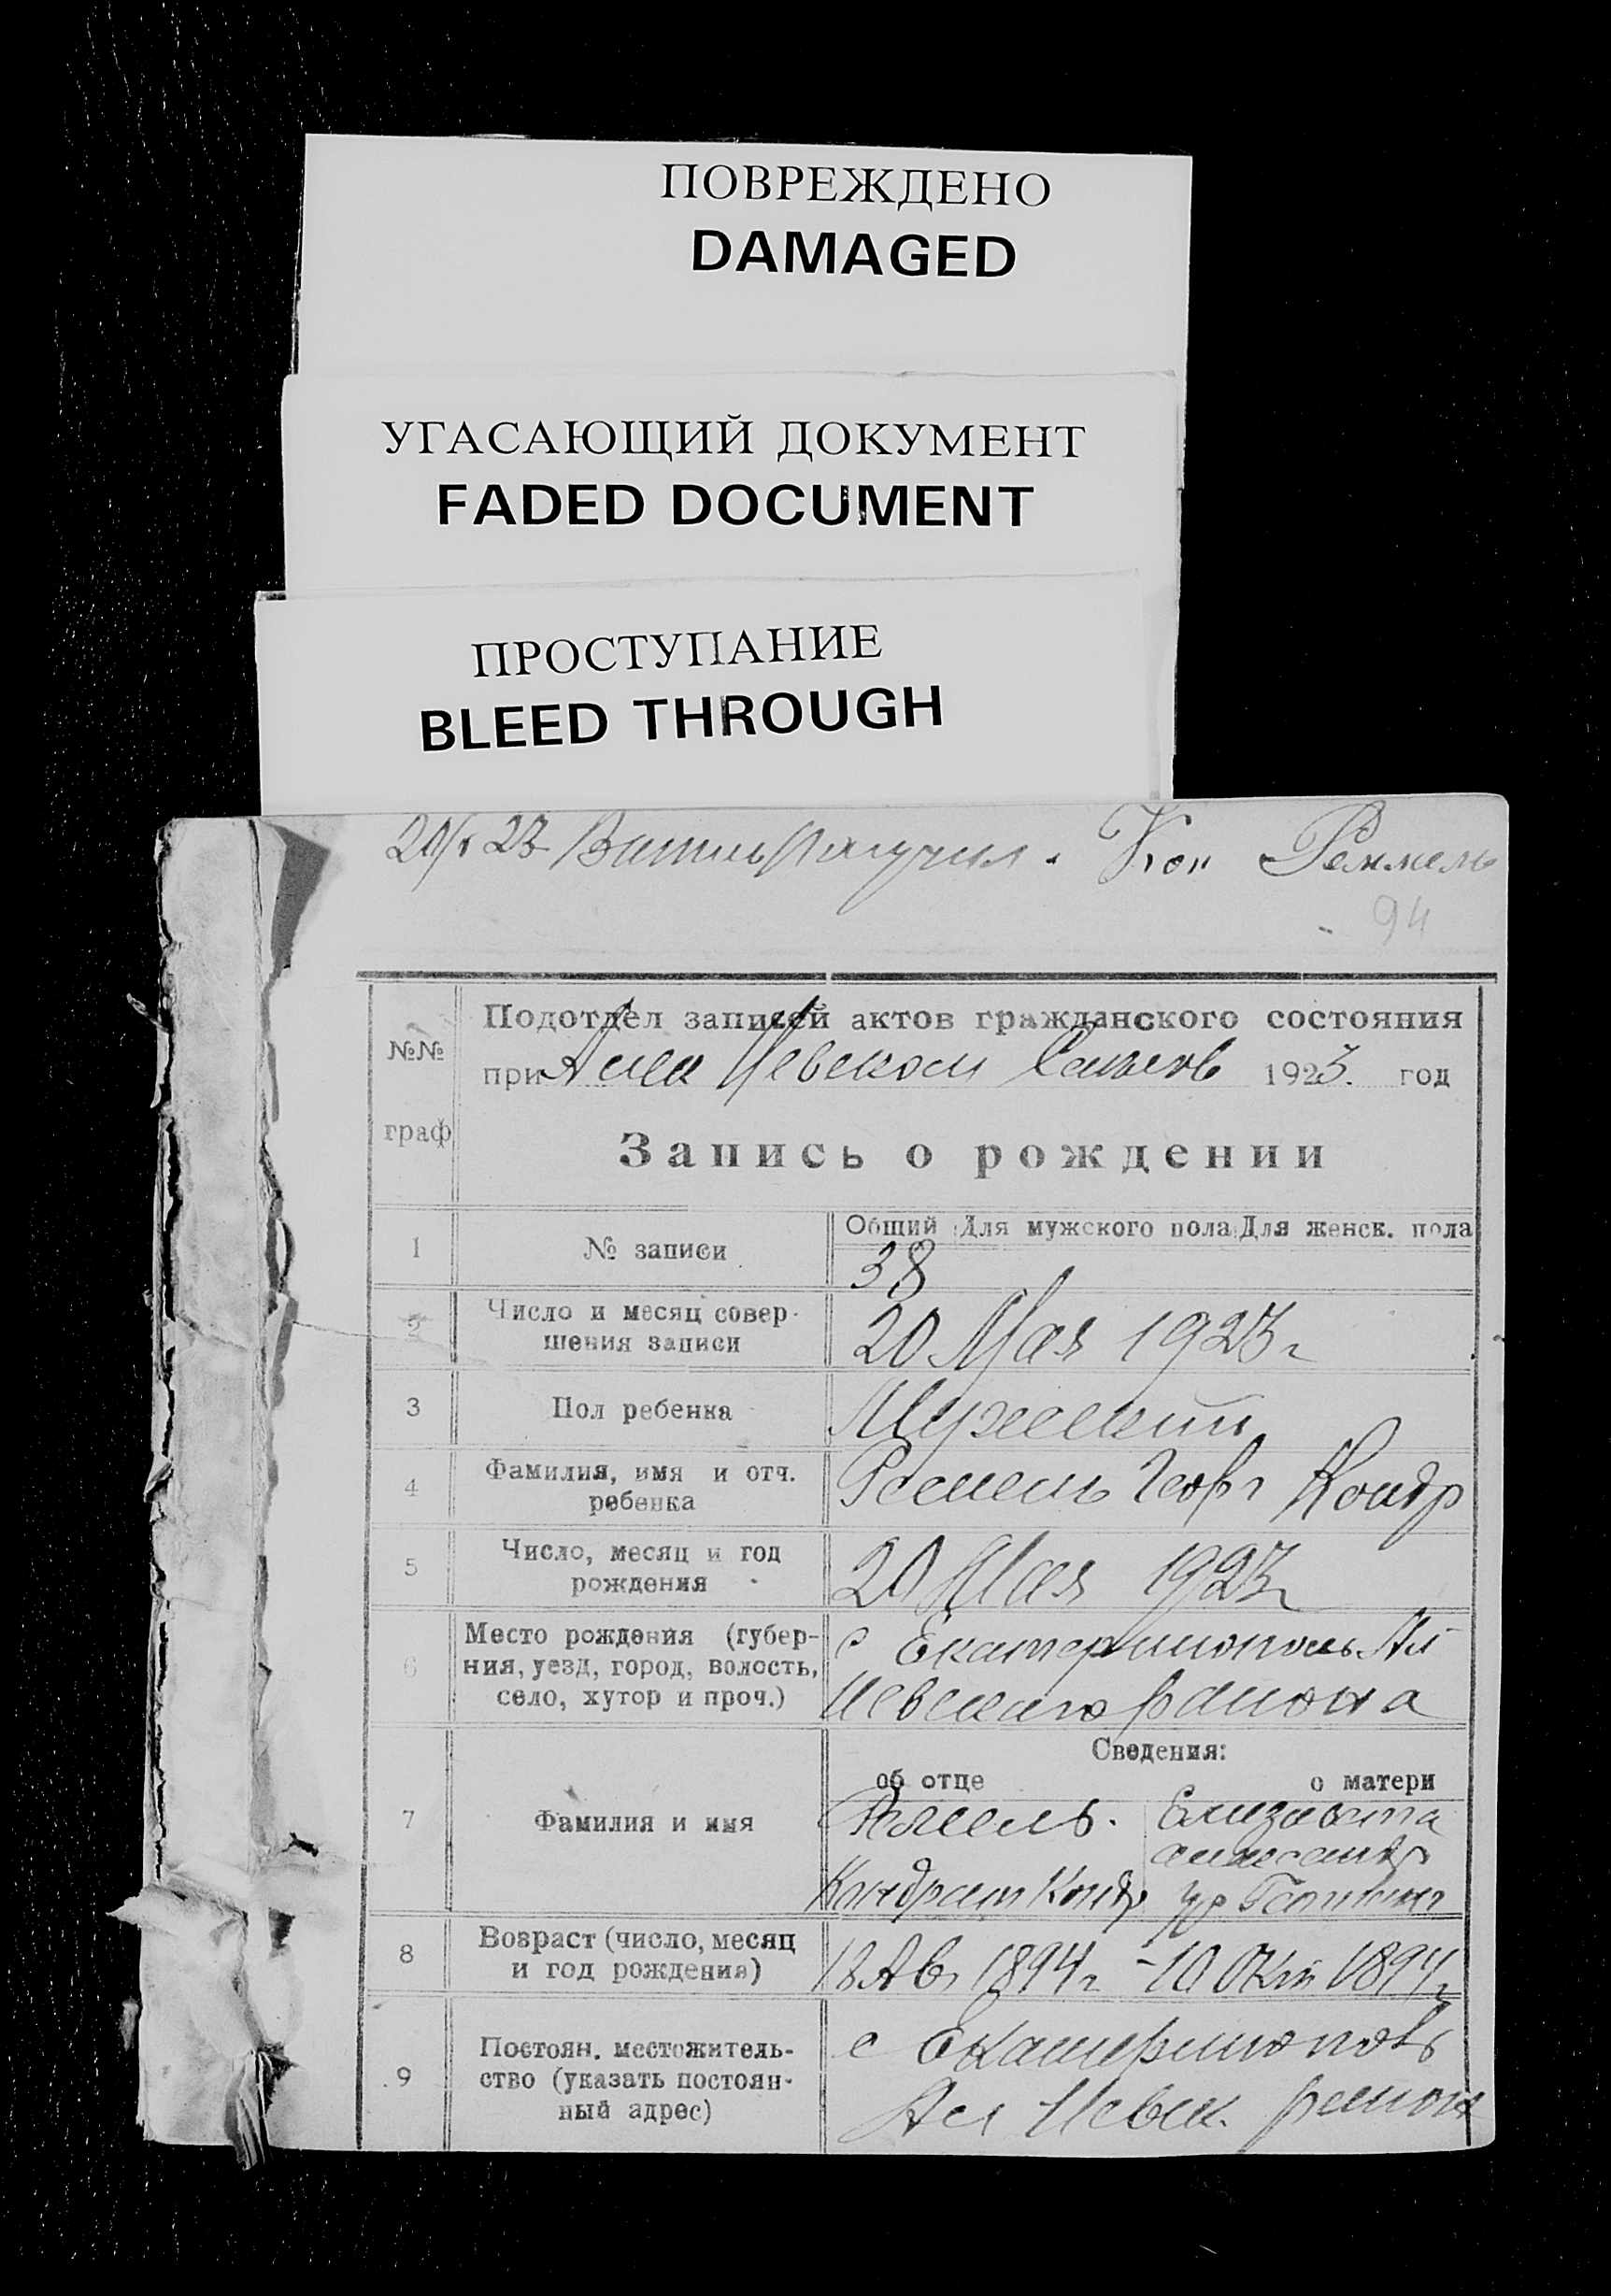 ПОВРЕЖДЕНО
DAMAGED
УГАСАЮЩИЙ ДОКУМЕНТ
FADED DOCUMENT
ПРОСТУПАНИЕ
BLEED THROUGH
20/V 23 получил. Кон Реммель
94
№№
граф
Подотдел записей актов гражданского состояния
при Алек Невском 1923. год
Запись о рождении
Общий Для мужского пола Для женск. пола
1 № записи 38
2 Число и месяц совер-
шения записи
20 Мая 1923 г
3 Пол ребенка Мужеский
4 Фамилия, имя и отч.
ребенка
Реммель Георг Кондр
5 Число, месяц и год
рождения
20 Мая 1923 г
6 Место рождения (губер-
ния, уезд, город, волость,
село, хутор и проч.)
с Екатеринополь Ал
Невского района
Сведения:
об отце о матери
7 Фамилия и имя
Реммель. Елизавета
Александр
Кондрат Кондр ур
8 Возраст (число, месяц
и год рождения)
18 Ав 1894 г 10 Окт 1894 г
9 Постоян. местожитель-
ство (указать постоян-
ный адрес)
с Екатеринополь
Ал Невск. район